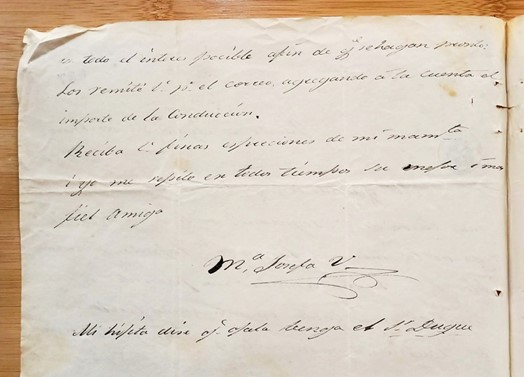 todo el interes posible afin de q.e se hagan pronto:
Los remite V. p.r el correo, agregando á la cuenta el
importe de la conduccion.
Reciba V. finas espreciones de mi mamita
i yo me repito en todos tiempos su mejor i mas
fiel amiga
M.a Josefa V.
Mi hijita dice q.e ojala benga el S.r Duque